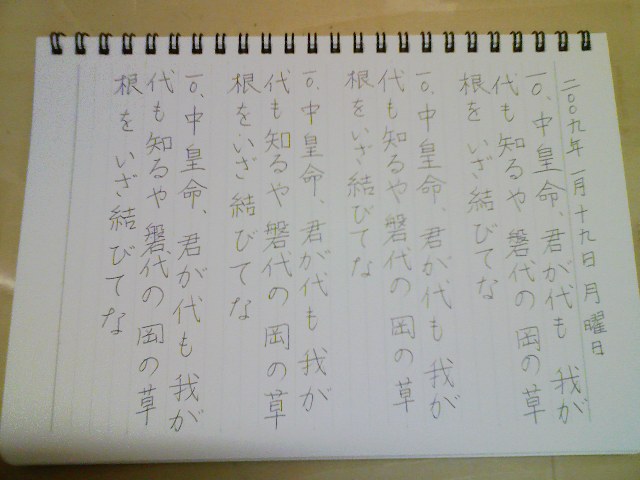 二〇〇九年 一月十九日 月曜日
一〇、中皇命、君が代も 我が
代も知るや 磐代の 岡の草
根を いざ 結びてな
一〇、中皇命、君が代も 我が
代も知るや 磐代の 岡の草
根を いざ 結びてな
一〇、中皇命、君が代も 我が
代も知るや 磐代の 岡の草
根を いざ 結びてな
一〇、中皇命、君が代も 我が
代も知るや 磐代の 岡の草
根を いざ 結びてな